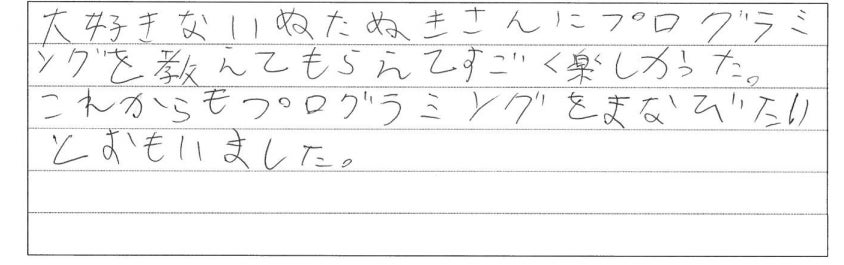 大好きないぬたぬきさんにプログラミ
ングを教えてもらえてすごく楽しかった。
これからもプログラミングをまなびたい
とおもいました。